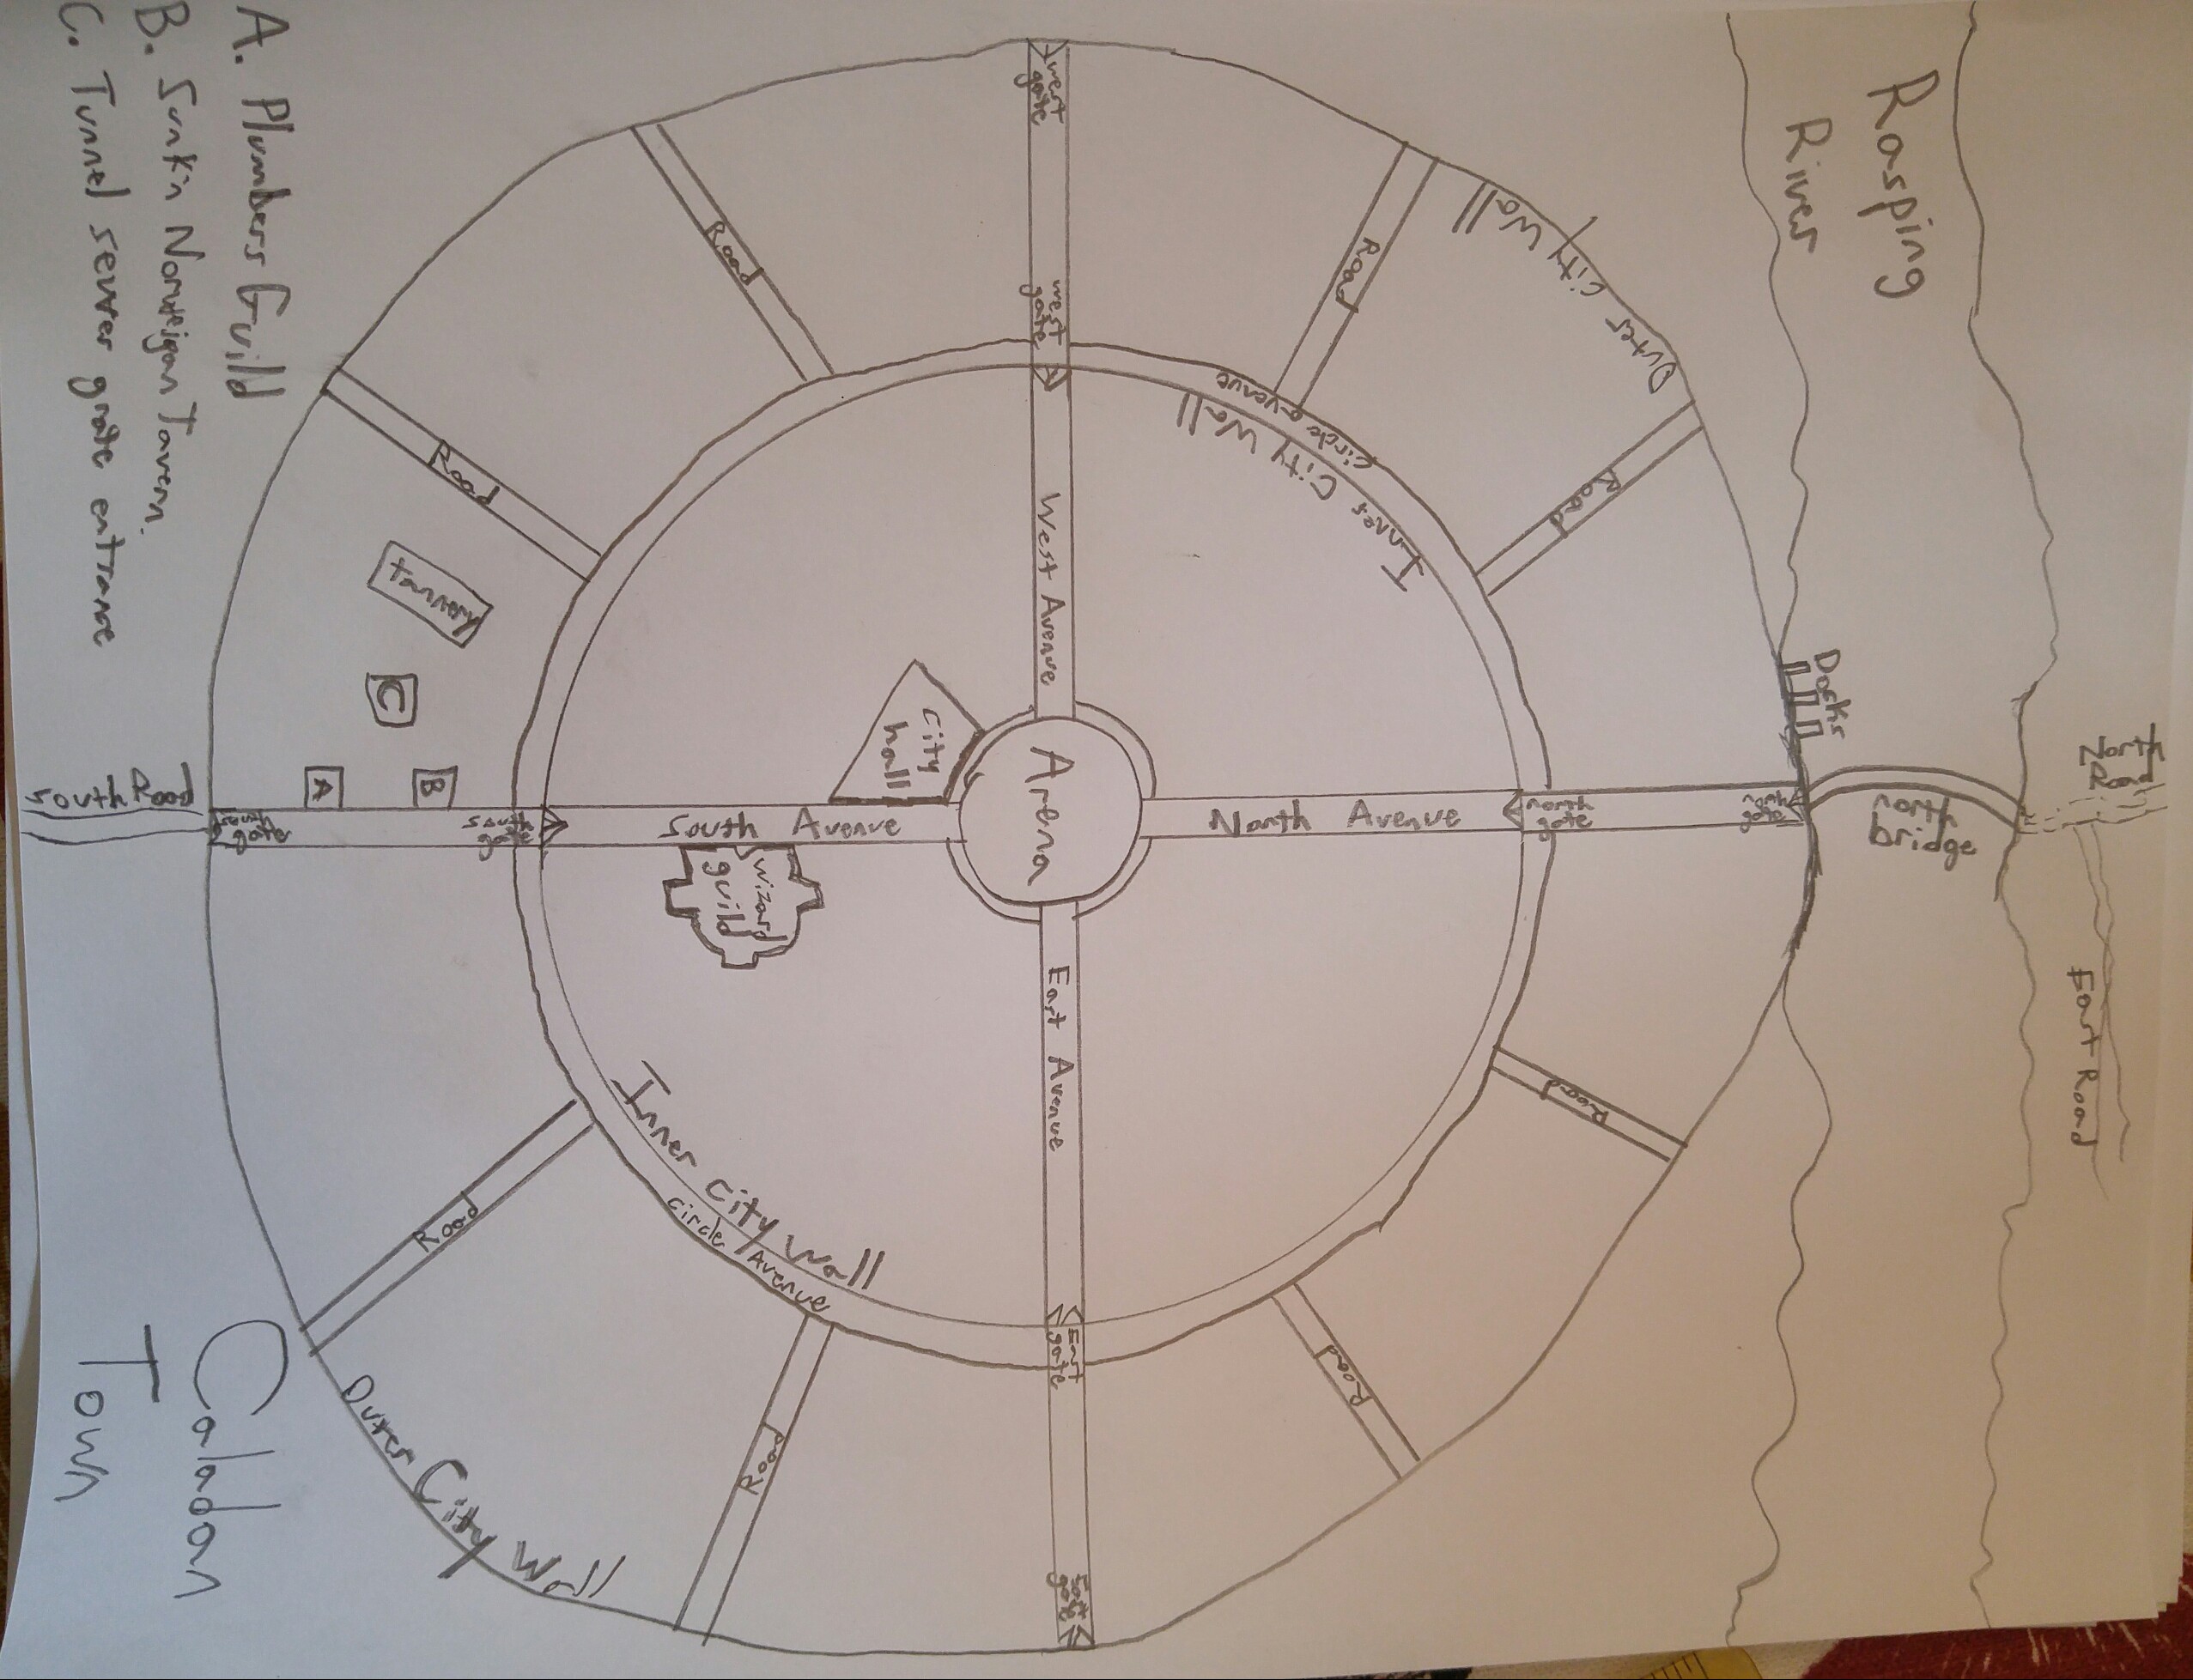 North
Road
East Road
Rasping
River
north
bridge
Docks
north
gate
Outer City Wall
Road
Road
north
gate
Road
Road
Inner City Wall
Circle avenue
North Avenue
west
gate
west
gate
West Avenue
Arena
East Avenue
East
gate
East
gate
City
hall
South Avenue
wizard
guild
Inner City Wall
Circle Avenue
Road
Road
Road
Road
south
gate
tannery
B
C
A
Outer City Wall
south
gate
South Road
A. Plumbers Guild
B. Sunk'n Norweigan Tavern.
C. Tunnel sewer grate entrance
Caladan
Town